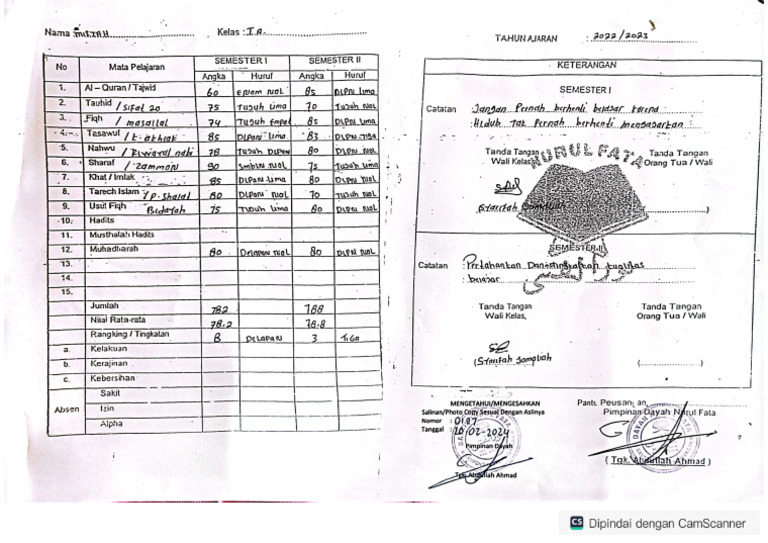 Nama : MISBAH
Kelas : I A.
No Mata Pelajaran SEMESTER I SEMESTER II
Angka Huruf Angka Huruf
1. Al – Quran / Tajwid 60 Enam NOL 85 DLPN Lima
2. Tauhid / Sifat 20 75 Tujuh Lima 70 Tujuh NOL
3. Fiqh / masailal 74 Tujuh Empat 85 DLPN Lima
4. Tasawuf / T. akhlak 85 DLPAN Lima 83 DLPN TIGA
5. Nahwu / 78 Tujuh DLPAN 80 DLPN NOL
6. Sharaf / Zammon 90 SMBLN NOL 75 Tujuh Lima
7. Khat / Imlak 85 DLPAN Lima 80 DLPN NOL
8. Tarech Islam / 80 DLPAN NOL 70 Tujuh NOL
9. Usul Fiqh Bidayah 75 Tujuh Lima 80 DLPN NOL
10. Hadits
11. Musthalah Hadits
12. Muhadharah 80 Delapan NOL 80 DLPN NOL
13.
14.
15.
Jumlah 782 788
Nilai Rata-rata 78.2 78.8
Rangking / Tingkatan 8 DELAPAN 3 TIGA
a. Kelakuan
b. Kerajinan
c. Kebersihan
Absen Sakit
Izin
Alpha
TAHUN AJARAN : 2022/2023
KETERANGAN
SEMESTER I
Catatan : Jangan Pernah berhenti belajar karena
Hidup Tak Pernah berhenti mengajarkan
Tanda Tangan
Wali Kelas,
Tanda Tangan
Orang Tua / Wali
NURUL FATA
(Syarifah Jamaliah)
(....................)
SEMESTER II
Catatan : Pertahankan Dan tingkatkan kualitas
belajar
Tanda Tangan
Wali Kelas,
Tanda Tangan
Orang Tua / Wali
(Syarifah Jamaliah)
(....................)
MENGETAHUI/MENGESAHKAN
Salinan/Photo Copy Sesuai Dengan Aslinya
Nomor : 0107
Tanggal : 20-02-2024
Pimpinan Dayah
Tgk. Abdullah Ahmad
Pante Peusangan,
Pimpinan Dayah Nurul Fata
( Tgk. Abdullah Ahmad )
CS Dipindai dengan CamScanner